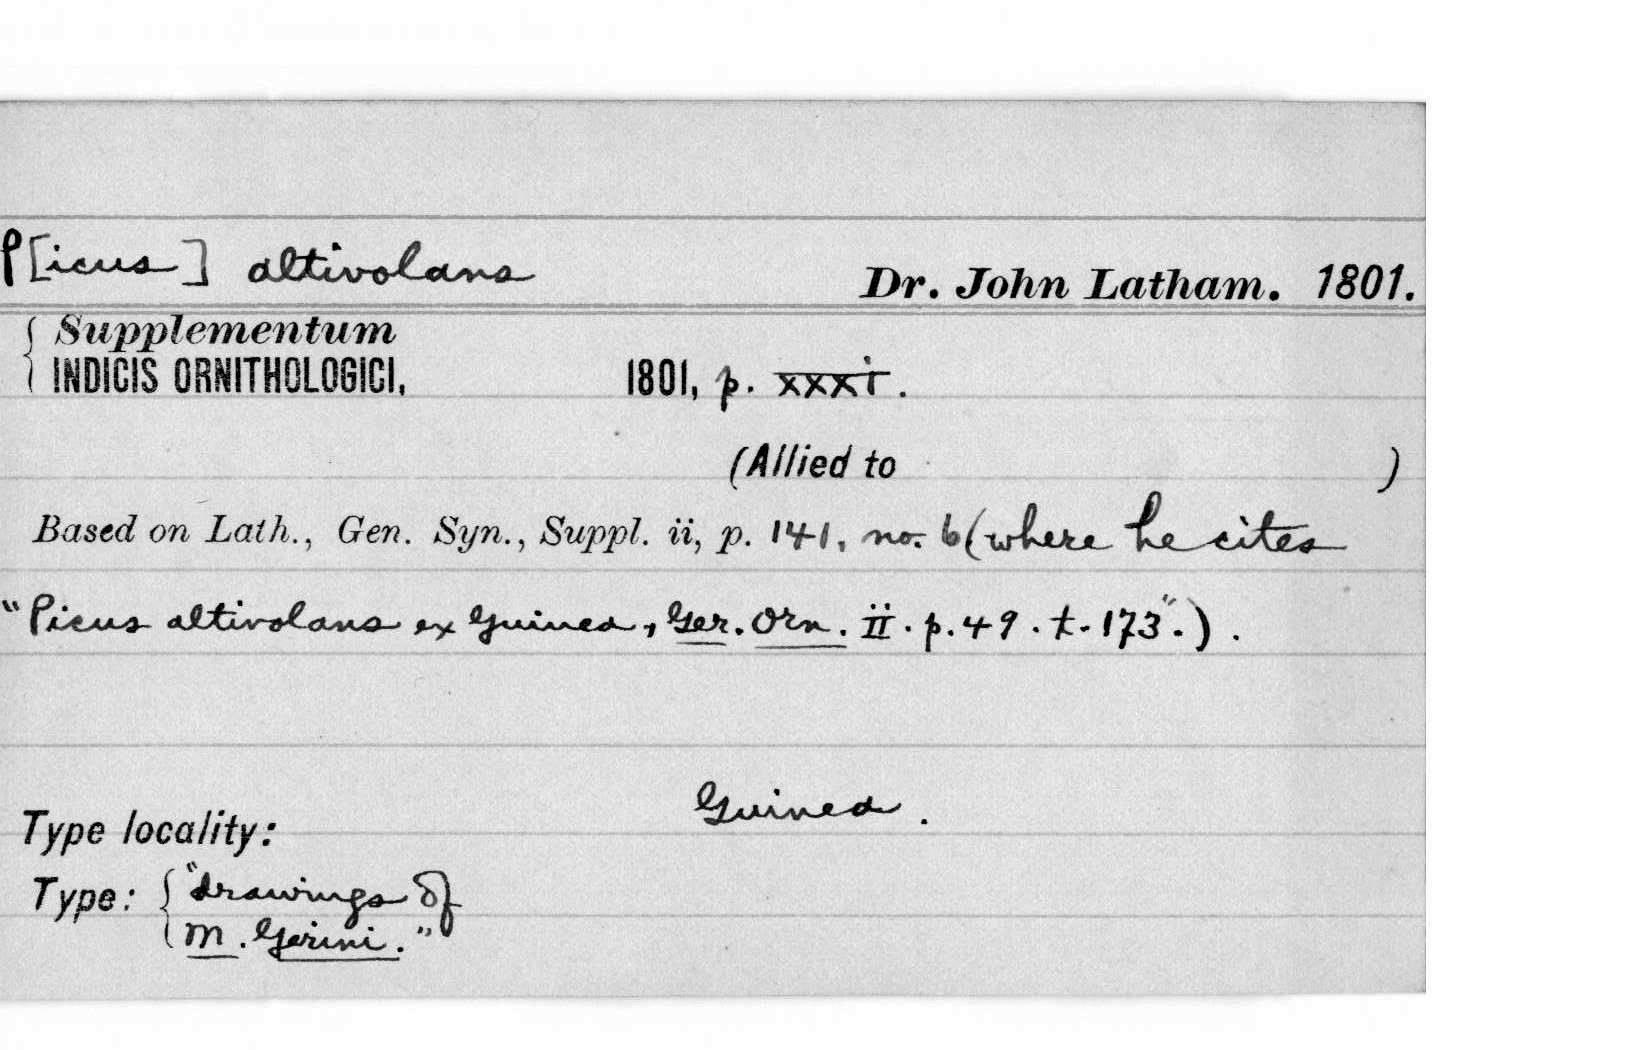 P[icus] altivolans
Dr. John Latham. 1801.
{ Supplementum
INDICIS ORNITHOLOGICI, 1801, p. xxxi.
(Allied to )
Based on Lath., Gen. Syn., Suppl. ii, p. 141, no. 6 (where he cites
"Picus altivolans ex Guinea, Ger. Orn. ii. p. 49. t. 173".).
Type locality: Guinea.
Type: { "drawings of
M. Gerini."